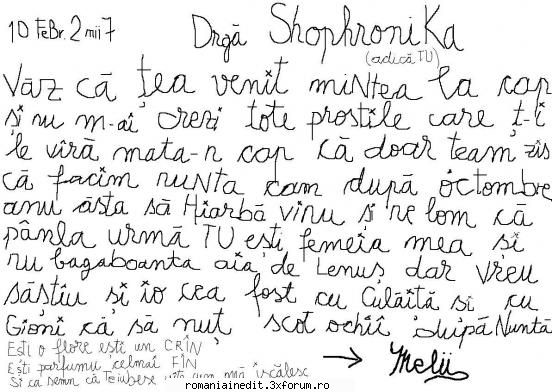 10 FeBr. 2mii7 Drgă ShophroniKa
(adică TU)
Văz că ţea venit miNtea la cap
şi nu m-ai crezi tote prostile care ţ-i
le vîră mata-n cap că doar team zis
că facim nuNta cam după octombre
anu ăsta să Hiarbă vinu şi ne lom că
pânla urmă TU eşti femeia mea şi
nu bagaboanta aia de Lenuş dar vreu
săştiu şi io cea fost cu Culăită şi cu
Gioni că să nuţ scot ochii după Nuntă
Eşti o flore eşti un CRÎN
Eşti parfumu celmai FÎN
Şi ca semn că Teiubesc uite cum mă iscălesc → Melii
romaniainedit.3xforum.ro